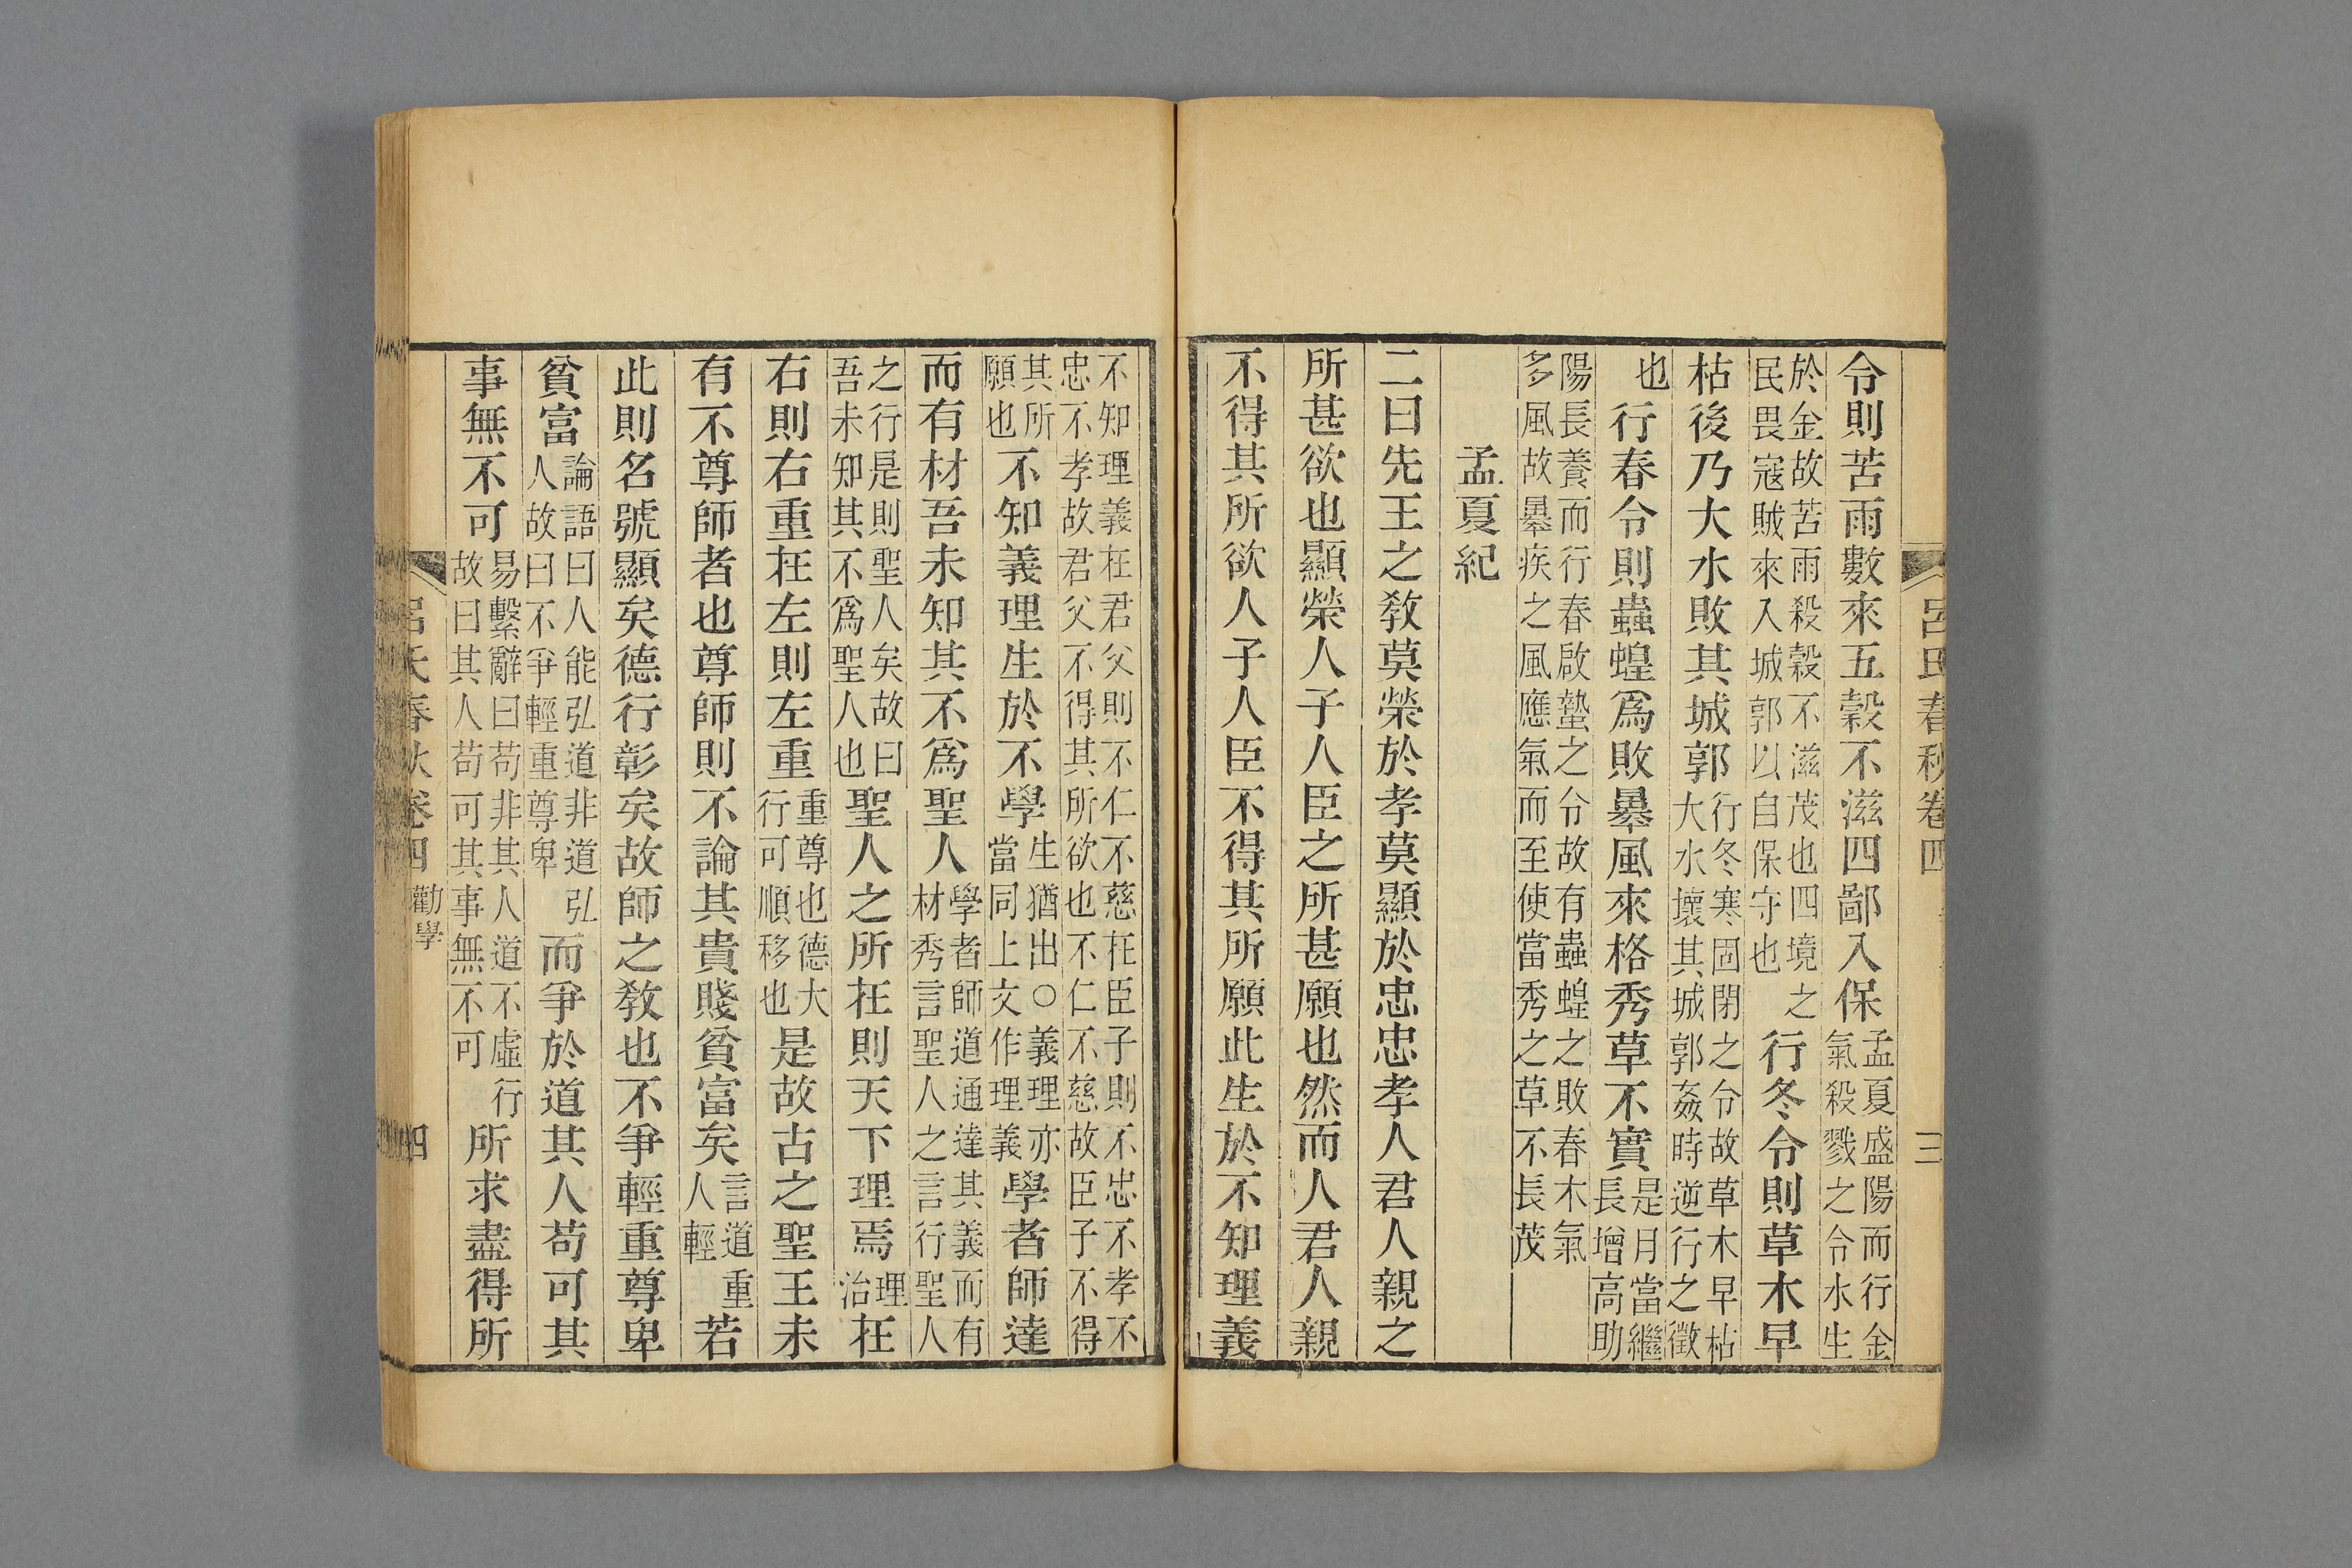 呂氏春秋卷四 三
令則苦雨數來五穀不滋四鄙入保孟夏盛陽而行金氣殺戮之令水生
於金故苦雨殺穀不滋茂也四境之民畏寇賊來入城郭以自保守也行冬令則草木早
枯後乃大水敗其城郭行冬寒固閉之令故草木早枯大水壞其城郭姦時逆行之徵
也行春令則蟲蝗爲敗暴風來格秀草不實是月當繼長增高助
陽長養而行春啟蟄之令故有蟲蝗之敗春木氣多風故暴疾之風應氣而至使當秀之草不長茂
孟夏紀
二曰先王之敎莫榮於孝莫顯於忠忠孝人君人親之
所甚欲也顯榮人子人臣之所甚願也然而人君人親
不得其所欲人子人臣不得其所願此生於不知理義
不知理義在君父則不仁不慈在臣子則不忠不孝不忠不孝故君父不得其所欲也不仁不慈故臣子不得
其所願也不知義理生於不學生猶出○義理亦當同上文作理義學者師達
而有材吾未知其不爲聖人學者師道通達其義而有材秀言聖人之言行聖人
之行是則聖人矣故曰吾未知其不爲聖人也聖人之所在則天下理焉理治在
右則右重在左則左重重尊也德大行可順移也是故古之聖王未
有不尊師者也尊師則不論其貴賤貧富矣言道重人輕若
此則名號顯矣德行彰矣故師之敎也不爭輕重尊卑
貧富論語曰人能弘道非道弘人故曰不爭輕重尊卑而爭於道其人苟可其
事無不可易繫辭曰苟非其人道不虛行故曰其人苟可其事無不可所求盡得所
呂氏春秋卷四 勸學 四